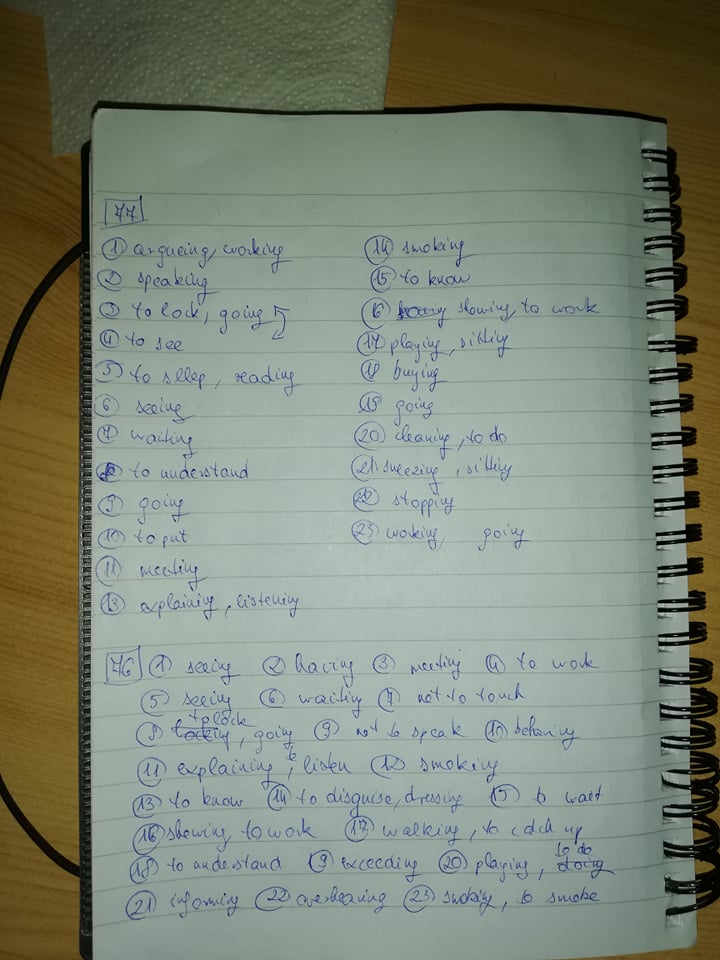 77
① argueing, working
② speaking
③ to lock, going
④ to see
⑤ to sllep, reading
⑥ seeing
⑦ waiting
⑧ to understand
⑨ going
⑩ to put
⑪ meeting
⑬ explaining, listening
⑭ smoking
⑮ to know
⑯ showing, to work
⑰ playing, sitting
⑱ buying
⑲ going
⑳ cleaning, to do
㉑ sneezing, sitting
㉒ stopping
㉓ working, going
76 ① seeing ② having ③ meeting ④ to work
⑤ seeing ⑥ waiting ⑦ not to touch
⑧ to lock, going ⑨ not to speak ⑩ behaving
⑪ explaining, to listen ⑫ smoking
⑬ to know ⑭ to disguise, dressing ⑮ to wait
⑯ showing, to work ⑰ walking, to catch up
⑱ to understand ⑲ exceeding ⑳ playing, to do
㉑ informing ㉒ overhearing ㉓ smoking, to smoke